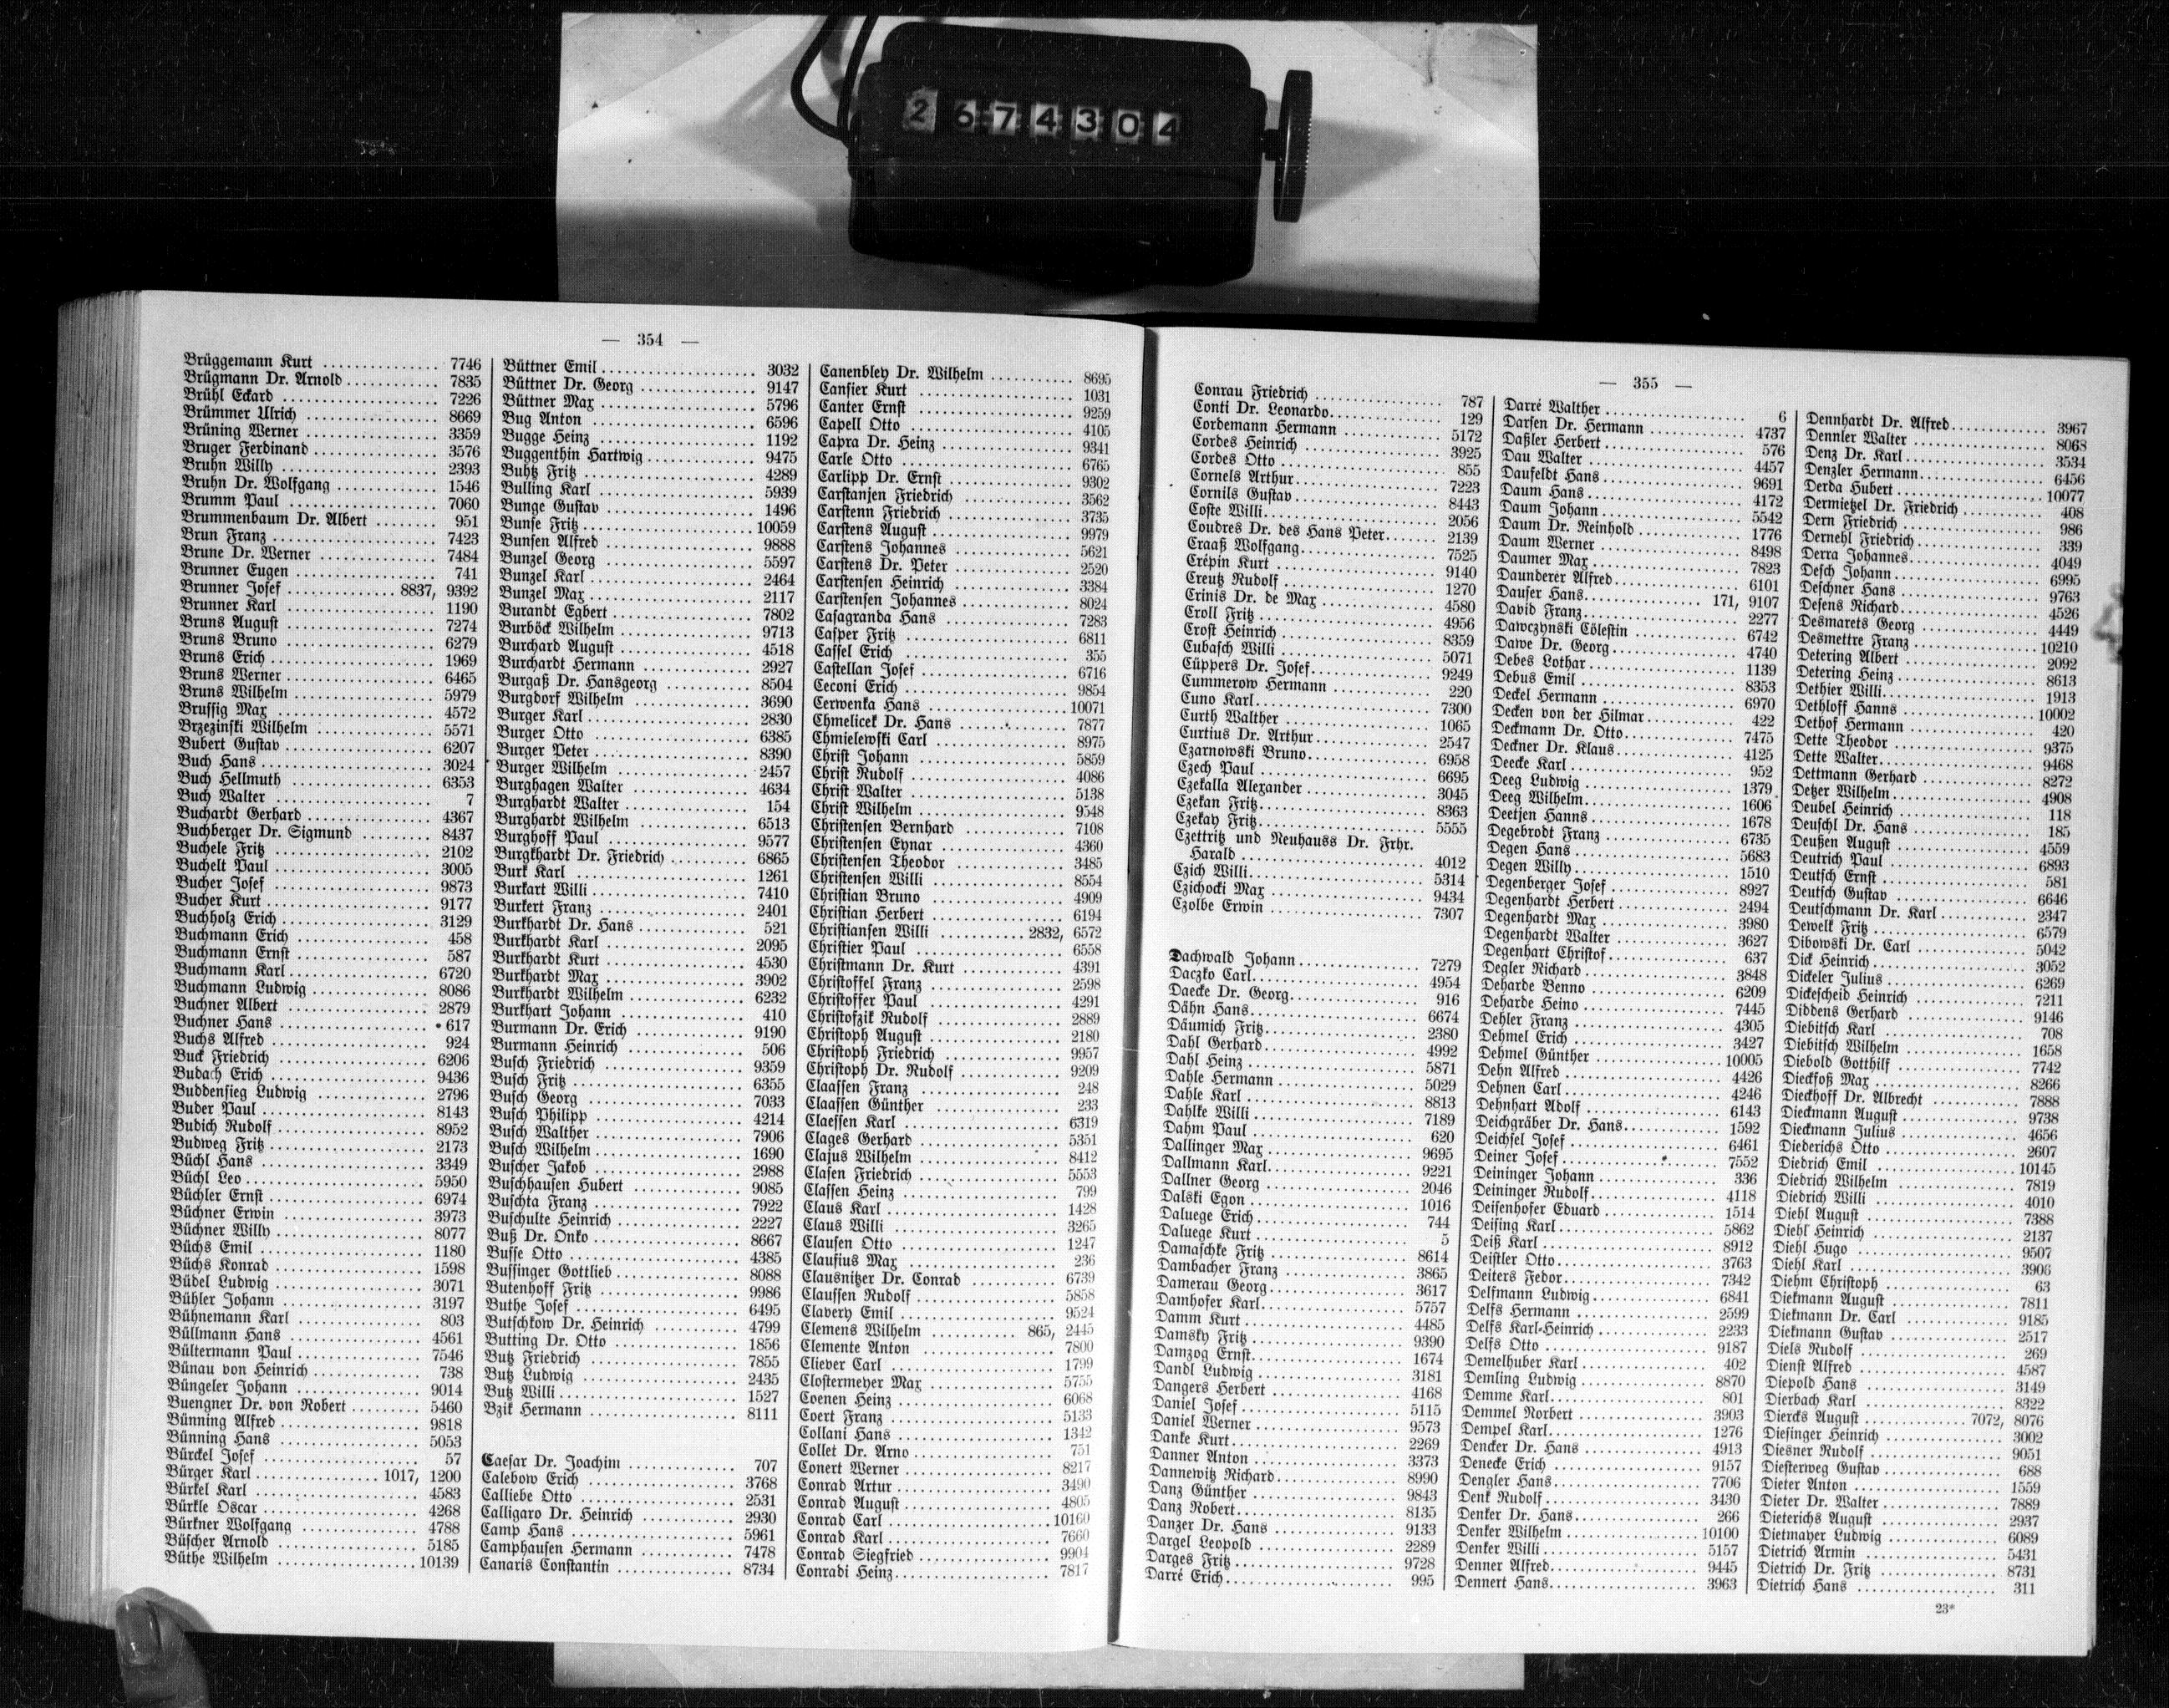 2674304
— 354 —
Brüggemann Kurt ................ 7746
Brügmann Dr. Arnold ............ 7835
Brühl Eckard .................... 7226
Brümmer Ulrich .................. 8669
Brüning Werner .................. 3359
Bruger Ferdinand ................ 3576
Bruhn Willy ..................... 2393
Bruhn Dr. Wolfgang .............. 1546
Brumm Paul ...................... 7060
Brummenbaum Dr. Albert ........ 951
Brun Franz ...................... 7423
Brune Dr. Werner ................ 7484
Brunner Eugen ................... 741
Brunner Josef ............. 8837, 9392
Brunner Karl .................... 1190
Bruns August .................... 7274
Bruns Bruno ..................... 6279
Bruns Erich ..................... 1969
Bruns Werner .................... 6465
Bruns Wilhelm ................... 5979
Brussig Max ..................... 4572
Brzezinski Wilhelm .............. 5571
Bubert Gustav ................... 6207
Buch Hans ....................... 3024
Buch Hellmuth ................... 6353
Buch Walter ..................... 7
Buchardt Gerhard ................ 4367
Buchberger Dr. Sigmund ......... 8437
Buchele Fritz ................... 2102
Buchelt Paul .................... 3005
Bucher Josef .................... 9873
Bucher Kurt ..................... 9177
Buchholz Erich .................. 3129
Buchmann Erich .................. 458
Buchmann Ernst .................. 587
Buchmann Karl ................... 6720
Buchmann Ludwig ................. 8086
Buchner Albert .................. 2879
Buchner Hans .................... 617
Buchs Alfred .................... 924
Buck Friedrich .................. 6206
Budach Erich .................... 9436
Buddensieg Ludwig ............... 2796
Buder Paul ...................... 8143
Budich Rudolf ................... 8952
Budweg Fritz .................... 2173
Büchl Hans ...................... 3349
Büchl Leo ....................... 5950
Büchler Ernst ................... 6974
Büchner Erwin ................... 3973
Büchner Willy ................... 8077
Büchs Emil ...................... 1180
Büchs Konrad .................... 1598
Büdel Ludwig .................... 3071
Bühler Johann ................... 3197
Bühnemann Karl .................. 803
Büllmann Hans ................... 4561
Bültermann Paul ................. 7546
Bünau von Heinrich .............. 738
Büngeler Johann ................. 9014
Buengner Dr. von Robert ......... 5460
Bünning Alfred .................. 9818
Bünning Hans .................... 5053
Bürckel Josef ................... 57
Bürger Karl ............... 1017, 1200
Bürkel Karl ..................... 4583
Bürkle Oscar .................... 4268
Bürkner Wolfgang ................ 4788
Büscher Arnold .................. 5185
Büthe Wilhelm ................... 10139
Büttner Emil .................... 3032
Büttner Dr. Georg ............... 9147
Büttner Max ..................... 5796
Bug Anton ....................... 6596
Bugge Heinz ..................... 1192
Buggenthin Hartwig .............. 9475
Buhtz Fritz ..................... 4289
Bulling Karl .................... 5939
Bunge Gustav .................... 1496
Bunse Fritz ..................... 10059
Bunsen Alfred ................... 9888
Bunzel Georg .................... 5597
Bunzel Karl ..................... 2464
Bunzel Max ...................... 2117
Burandt Egbert .................. 7802
Burböck Wilhelm ................. 9713
Burchard August ................. 4518
Burchardt Hermann ............... 2927
Burgaß Dr. Hansgeorg ............ 8504
Burgdorf Wilhelm ................ 3690
Burger Karl ..................... 2830
Burger Otto ..................... 6385
Burger Peter .................... 8390
Burger Wilhelm .................. 2457
Burghagen Walter ................ 4634
Burghardt Walter ................ 154
Burghardt Wilhelm ............... 6513
Burghoff Paul ................... 9577
Burgkhardt Dr. Friedrich ........ 6865
Burk Karl ....................... 1261
Burkart Willi ................... 7410
Burkert Franz ................... 2401
Burkhardt Dr. Hans .............. 521
Burkhardt Karl .................. 2095
Burkhardt Kurt .................. 4530
Burkhardt Max ................... 3902
Burkhardt Wilhelm ............... 6232
Burkhart Johann ................. 410
Burmann Dr. Erich ............... 9190
Burmann Heinrich ................ 506
Busch Friedrich ................. 9359
Busch Fritz ..................... 6355
Busch Georg ..................... 7033
Busch Philipp ................... 4214
Busch Walther ................... 7906
Busch Wilhelm ................... 1690
Buscher Jakob ................... 2988
Buschhausen Hubert .............. 9085
Buschta Franz ................... 7922
Buschulte Heinrich .............. 2227
Buß Dr. Onko .................... 8667
Busse Otto ...................... 4385
Bussinger Gottlieb .............. 8088
Butenhoff Fritz ................. 9986
Buthe Josef ..................... 6495
Butschkow Dr. Heinrich .......... 4799
Butting Dr. Otto ................ 1856
Butz Friedrich .................. 7855
Butz Ludwig ..................... 2435
Butz Willi ...................... 1527
Bzik Hermann .................... 8111
Caesar Dr. Joachim .............. 707
Calebow Erich ................... 3768
Calliebe Otto ................... 2531
Calligaro Dr. Heinrich .......... 2930
Camp Hans ....................... 5961
Camphausen Hermann .............. 7478
Canaris Constantin .............. 8734
Canenbley Dr. Wilhelm ........... 8695
Cansier Kurt .................... 1031
Canter Ernst .................... 9259
Capell Otto ..................... 4105
Capra Dr. Heinz ................. 9341
Carle Otto ...................... 6765
Carlipp Dr. Ernst ............... 9302
Carstanjen Friedrich ............ 3562
Carstenn Friedrich .............. 3735
Carstens August ................. 9979
Carstens Johannes ............... 5621
Carstens Dr. Peter .............. 2520
Carstensen Heinrich ............. 3384
Carstensen Johannes ............. 8024
Casagranda Hans ................. 7283
Casper Fritz .................... 6811
Cassel Erich .................... 355
Castellan Josef ................. 6716
Ceconi Erich .................... 9854
Cerwenka Hans ................... 10071
Chmelicek Dr. Hans .............. 7877
Chmielewski Carl ................ 8975
Christ Johann ................... 5859
Christ Rudolf ................... 4086
Christ Walter ................... 5138
Christ Wilhelm .................. 9548
Christensen Bernhard ............ 7108
Christensen Eynar ............... 4360
Christensen Theodor ............. 3485
Christensen Willi ............... 8554
Christian Bruno ................. 4909
Christian Herbert ............... 6194
Christiansen Willi ......... 2832, 6572
Christier Paul .................. 6558
Christmann Dr. Kurt ............. 4391
Christoffel Franz ............... 2598
Christoffer Paul ................ 4291
Christofzik Rudolf .............. 2889
Christoph August ................ 2180
Christoph Friedrich ............. 9957
Christoph Dr. Rudolf ............ 9209
Claassen Franz .................. 248
Claassen Günther ................ 233
Claessen Karl ................... 6319
Clages Gerhard .................. 5351
Clajus Wilhelm .................. 8412
Clasen Friedrich ................ 5553
Classen Heinz ................... 799
Claus Karl ...................... 1428
Claus Willi ..................... 3265
Clausen Otto .................... 1247
Clausius Max .................... 236
Clausnitzer Dr. Conrad .......... 6739
Claussen Rudolf ................. 5858
Clavery Emil .................... 9524
Clemens Wilhelm ............ 865, 2445
Clemente Anton .................. 7800
Cliever Carl .................... 1799
Clostermeyer Max ................ 5755
Coenen Heinz .................... 6068
Coert Franz ..................... 5133
Collani Hans .................... 1342
Collet Dr. Arno ................. 751
Conert Werner ................... 8217
Conrad Artur .................... 3490
Conrad August ................... 4805
Conrad Carl ..................... 10160
Conrad Karl ..................... 7660
Conrad Siegfried ................ 9904
Conradi Heinz ................... 7817
— 355 —
Conrau Friedrich ................ 787
Conti Dr. Leonardo .............. 129
Cordemann Hermann ............... 5172
Cordes Heinrich ................. 3925
Cordes Otto ..................... 855
Cornels Arthur .................. 7223
Cornils Gustav .................. 8443
Coste Willi ..................... 2056
Coudres Dr. des Hans Peter ...... 2139
Craaß Wolfgang .................. 7525
Crépin Kurt ..................... 9140
Creutz Rudolf ................... 1270
Crinis Dr. de Max ............... 4580
Croll Fritz ..................... 4956
Crost Heinrich .................. 8359
Cubasch Willi ................... 5071
Cüppers Dr. Josef ............... 9249
Cummerow Hermann ................ 220
Cuno Karl ....................... 7300
Curth Walther ................... 1065
Curtius Dr. Arthur .............. 2547
Czarnowski Bruno ................ 6958
Czech Paul ...................... 6695
Czekalla Alexander .............. 3045
Czekan Fritz .................... 8363
Czekay Fritz .................... 5555
Czettritz und Neuhauss Dr. Frhr.
Harald .......................... 4012
Czich Willi ..................... 5314
Czichocki Max ................... 9434
Czolbe Erwin .................... 7307
Dachwald Johann ................. 7279
Daczko Carl ..................... 4954
Daecke Dr. Georg ................ 916
Dähn Hans ....................... 6674
Däumich Fritz ................... 2380
Dahl Gerhard .................... 4992
Dahl Heinz ...................... 5871
Dahle Hermann ................... 5029
Dahle Karl ...................... 8813
Dahlke Willi .................... 7189
Dahm Paul ....................... 620
Dallinger Max ................... 9695
Dallmann Karl ................... 9221
Dallner Georg ................... 2046
Dalski Egon ..................... 1016
Daluege Erich ................... 744
Daluege Kurt .................... 5
Damaschke Fritz ................. 8614
Dambacher Franz ................. 3865
Damerau Georg ................... 3617
Damhofer Karl ................... 5757
Damm Kurt ....................... 4485
Damsky Fritz .................... 9390
Damzog Ernst .................... 1674
Dandl Ludwig .................... 3181
Dangers Herbert ................. 4168
Daniel Josef .................... 5115
Daniel Werner ................... 9573
Danke Kurt ...................... 2269
Danner Anton .................... 3373
Dannewitz Richard ............... 8990
Danz Günther .................... 9843
Danz Robert ..................... 8135
Danzer Dr. Hans ................. 9133
Dargel Leopold .................. 2289
Darges Fritz .................... 9728
Darré Erich ..................... 995
Darré Walther ................... 6
Darsen Dr. Hermann .............. 4737
Daßler Herbert .................. 576
Dau Walter ...................... 4457
Daufeldt Hans ................... 9691
Daum Hans ....................... 4172
Daum Johann ..................... 5542
Daum Dr. Reinhold ............... 1776
Daum Werner ..................... 8498
Daumer Max ...................... 7823
Daunderer Alfred ................ 6101
Dauser Hans ................ 171, 9107
David Franz ..................... 2277
Dawczynski Cölestin ............. 6742
Dawe Dr. Georg .................. 4740
Debes Lothar .................... 1139
Debus Emil ...................... 8353
Deckel Hermann .................. 6970
Decken von der Hilmar ........... 422
Deckmann Dr. Otto ............... 7475
Deckner Dr. Klaus ............... 4125
Deecke Karl ..................... 952
Deeg Ludwig ..................... 1379
Deeg Wilhelm .................... 1606
Deetjen Hanns ................... 1678
Degebrodt Franz ................. 6735
Degen Hans ...................... 5683
Degen Willy ..................... 1510
Degenberger Josef ............... 8927
Degenhardt Herbert .............. 2494
Degenhardt Max .................. 3980
Degenhardt Walter ............... 3627
Degenhart Christof .............. 637
Degler Richard .................. 3848
Deharde Benno ................... 6209
Deharde Heino ................... 7445
Dehler Franz .................... 4305
Dehmel Erich .................... 3427
Dehmel Günther .................. 10005
Dehn Alfred ..................... 4426
Dehnen Carl ..................... 4246
Dehnhart Adolf .................. 6143
Deichgräber Dr. Hans ............ 1592
Deichsel Josef .................. 6461
Deiner Josef .................... 7552
Deininger Johann ................ 336
Deininger Rudolf ................ 4118
Deisenhofer Eduard .............. 1514
Deising Karl .................... 5862
Deiß Karl ....................... 8912
Deistler Otto ................... 3763
Deiters Fedor ................... 7342
Delfmann Ludwig ................. 6841
Delfs Hermann ................... 2599
Delfs Karl-Heinrich ............. 2233
Delfs Otto ...................... 9187
Demelhuber Karl ................. 402
Demling Ludwig .................. 8870
Demme Karl ...................... 801
Demmel Norbert .................. 3903
Dempel Karl ..................... 1276
Dencker Dr. Hans ................ 4913
Denecke Erich ................... 9157
Dengler Hans .................... 7706
Denk Rudolf ..................... 3430
Denker Dr. Hans ................. 266
Denker Wilhelm .................. 10100
Denker Willi .................... 5157
Denner Alfred ................... 9445
Dennert Hans .................... 3963
Dennhardt Dr. Alfred ............ 3967
Dennler Walter .................. 8068
Denz Dr. Karl ................... 3534
Denzler Hermann ................. 6456
Derda Hubert .................... 10077
Dermietzel Dr. Friedrich ........ 408
Dern Friedrich .................. 986
Dernehl Friedrich ............... 339
Derra Johannes .................. 4049
Desch Johann .................... 6995
Deschner Hans ................... 9763
Desens Richard .................. 4526
Desmarets Georg ................. 4449
Desmettre Franz ................. 10210
Detering Albert ................. 2092
Detering Heinz .................. 8613
Dethier Willi ................... 1913
Dethloff Hanns .................. 10002
Dethof Hermann .................. 420
Dette Theodor ................... 9375
Dette Walter .................... 9468
Dettmann Gerhard ................ 8272
Detzer Wilhelm .................. 4908
Deubel Heinrich ................. 118
Deuschl Dr. Hans ................ 185
Deußen August ................... 4559
Deutrich Paul ................... 6893
Deutsch Ernst ................... 581
Deutsch Gustav .................. 6646
Deutschmann Dr. Karl ............ 2347
Dewelk Fritz .................... 6579
Dibowski Dr. Carl ............... 5042
Dick Heinrich ................... 3052
Dickeler Julius ................. 6269
Dickescheid Heinrich ............ 7211
Diddens Gerhard ................. 9146
Diebitsch Karl .................. 708
Diebitsch Wilhelm ............... 1658
Diebold Gotthilf ................ 7742
Dieckfoß Max .................... 8266
Dieckhoff Dr. Albrecht .......... 7888
Dieckmann August ................ 9738
Dieckmann Julius ................ 4656
Diederichs Otto ................. 2607
Diedrich Emil ................... 10145
Diedrich Wilhelm ................ 7819
Diedrich Willi .................. 4010
Diehl August .................... 7388
Diehl Heinrich .................. 2137
Diehl Hugo ...................... 9507
Diehl Karl ...................... 3906
Diehm Christoph ................. 63
Diekmann August ................. 7811
Diekmann Dr. Carl ............... 9185
Diekmann Gustav ................. 2517
Diels Rudolf .................... 269
Dienst Alfred ................... 4587
Diepold Hans .................... 3149
Dierbach Karl ................... 8322
Diercks August ............. 7072, 8076
Diesinger Heinrich .............. 3002
Diesner Rudolf .................. 9051
Diesterweg Gustav ............... 688
Dieter Anton .................... 1559
Dieter Dr. Walter ............... 7889
Dieterichs August ............... 2937
Dietmayer Ludwig ................ 6089
Dietrich Armin .................. 5431
Dietrich Dr. Fritz .............. 8731
Dietrich Hans ................... 311
23*